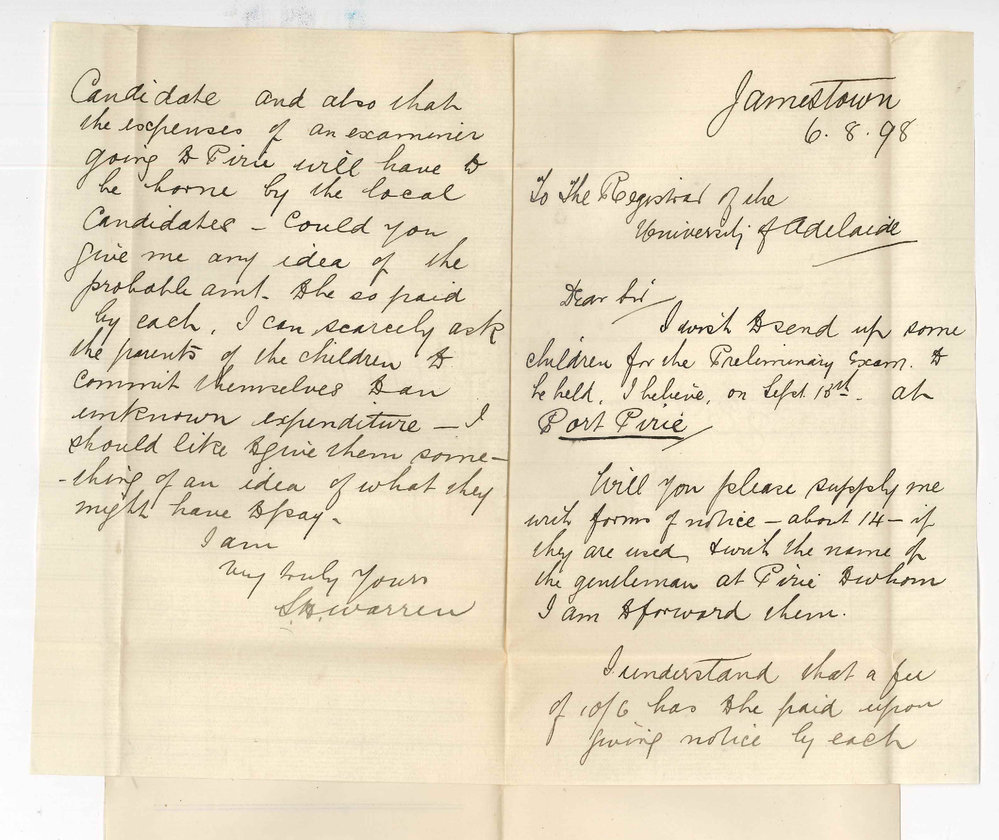 Jamestown
6. 8. 98
To The Registrar of the
University of Adelaide
Dear Sir
I wish to send up some
children for the Preliminary Exam. to
be held, I believe, on Sept 13th. at
Port Pirie
Will you please supply me
with forms of notice – about 14 – if
they are used, & with the name of
the gentleman at Pirie to whom
I am to forward them.
I understand that a fee
of 10/6 has to be paid upon
giving notice by each
Candidate and also that
the expenses of an examiner
going to Pirie will have to
be borne by the local
Candidates – Could you
give me any idea of the
probable amt. to be so paid
by each. I can scarcely ask
the parents of the children to
commit themselves to an
unknown expenditure – I
should like to give them some-
-thing of an idea of what they
might have to pay.
I am
Very truly Yours
S. H. Warren